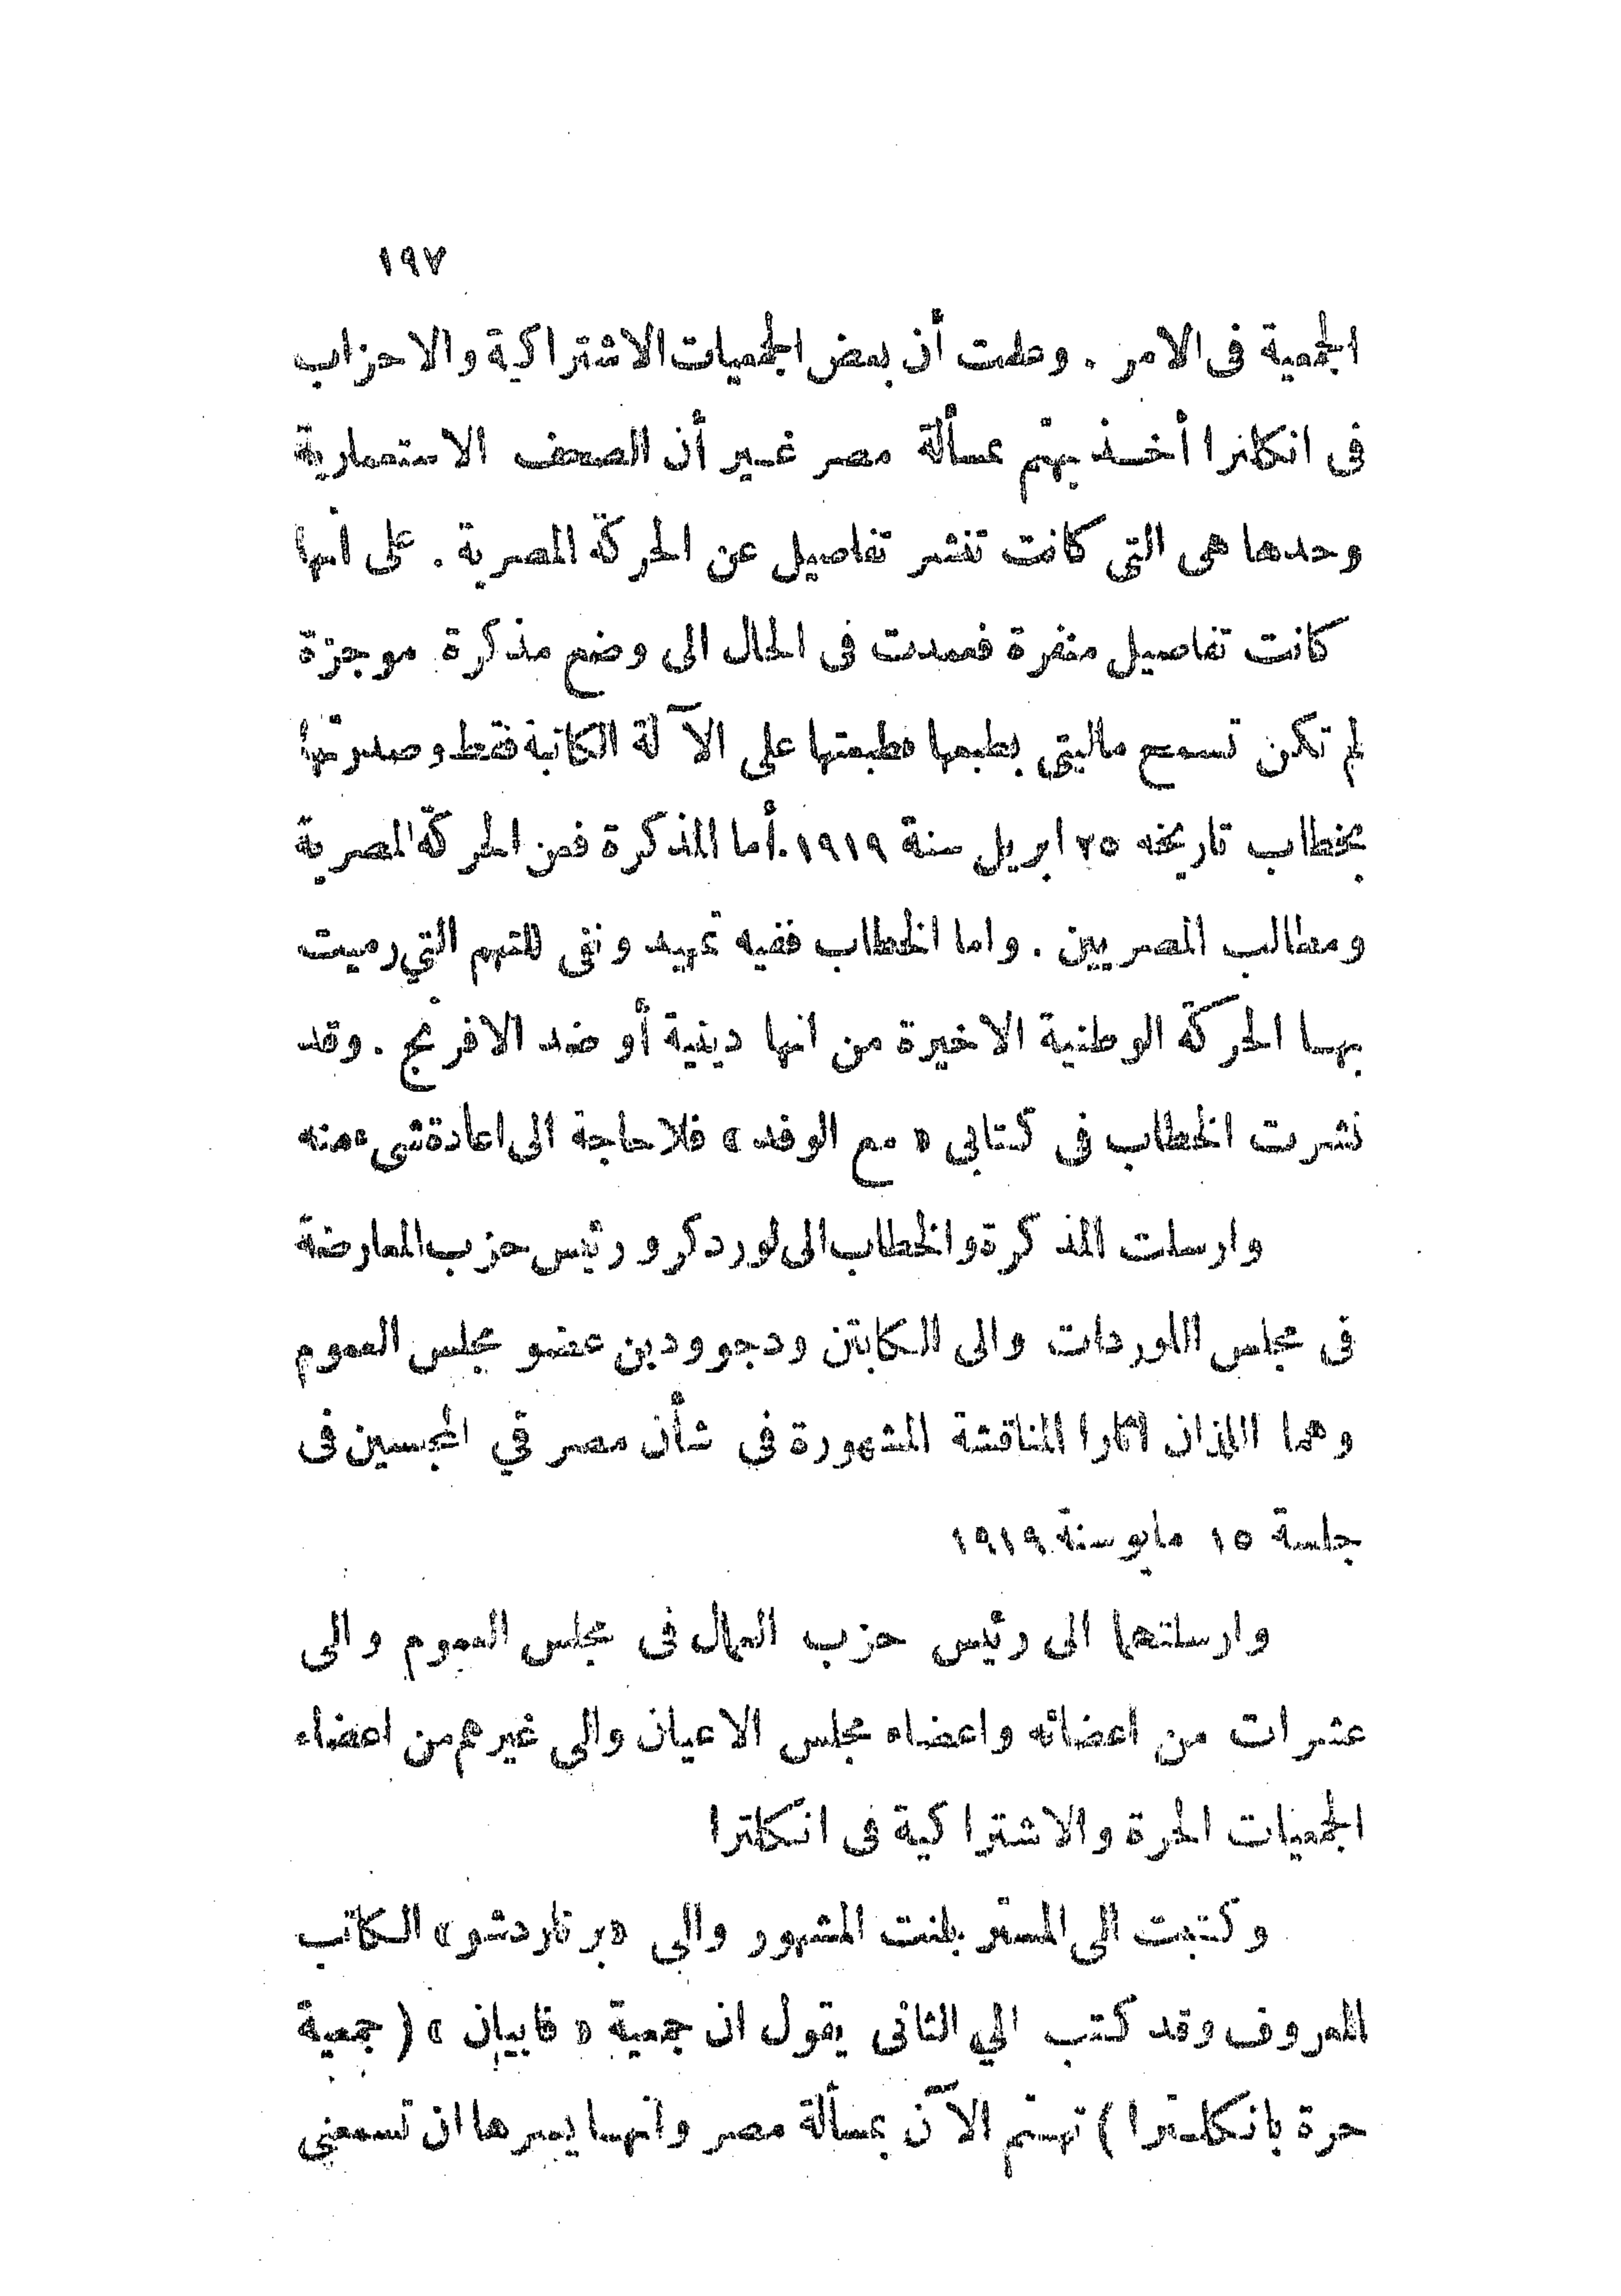 ١٩٧
الجمعية فى الامر . وعلمت أن بعض الجمعيات الاشتراكية والاحزاب
فى انكلترا أخذ يهتم بمسألة مصر غير أن الصحف الاستعمارية
وحدها هى التى كانت تنشر تفاصيل عن الحركة المصرية . على انها
كانت تفاصيل منفرة فعمدت فى الحال الى وضع مذكرة موجزة
لم تكن تسمح ماليتى بطبعها فطبعتها على الآلة الكاتبة فقط وصدرتها
بخطاب تاريخه ٢٥ ابريل سنة ١٩١٩. أما المذكرة فعن الحركة المصرية
ومطالب المصريين . واما الخطاب ففيه تمهيد ونفى للتهم التي رميت
بهـا الحركة الوطنية الاخيرة من انها دينية أو ضد الافرنج . وقد
نشرت الخطاب فى كتابى « مع الوفد » فلا حاجة الى اعادة شىء منه
وارسلت المذكرة والخطاب الى لورد كرو رئيس حزب المعارضة
فى مجلس اللوردات والى الكابتن ودجوودبن عضو مجلس العموم
وهما اللذان اثارا المناقشة المشهورة فى شأن مصر في المجلسين فى
جلسة ١٥ مايو سنة ١٩١٩
وارسلتهما الى رئيس حزب العمال فى مجلس العموم والى
عشرات من اعضائه واعضاء مجلس الاعيان والى غيرهم من اعضاء
الجمعيات الحرة والاشتراكية فى انكلترا
وكتبت الى المستر بلنت المشهور والى «برناردشو» الكاتب
المعروف وقد كتب الي الثانى يقول ان جمعية « فابيان » ( جمعية
حرة بانكلترا ) تهتم الآن بمسألة مصر وانهـا يسرها ان تسمعنى